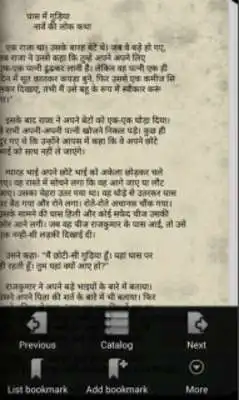 घास में गुड़िया
नार्वे की लोक कथा
एक राजा था। उसके बारह बेटे थे। जब वे बड़े हो गए,
तब राजा ने उनसे कहा कि तुम्हें अपने अपने लिए
एक-एक पत्नी ढूंढकर लानी है। लेकिन वह पत्नी एक ही
दिन में सूत कातकर कपड़ा बुने, फिर उससे एक कमीज सि
लकर दिखाए, तभी मैं उसे बहू के रूप में स्वीकार करूं
गा।"
इसके बाद राजा ने अपने बेटों को एक-एक घोड़ा दिया।
वे सभी अपनी-अपनी पत्नी खोजने निकल पड़े। कुछ ही
दूर गए थे कि उन्होंने आपस में कहा कि वे अपने छोटे
भाई को साथ नहीं ले जाएंगे।
ग्यारह भाई अपने छोटे भाई को अकेला छोड़कर चले
गए। वह रास्ते में सोचने लगा कि वह आगे जाए या लौट
जाए। उसका चेहरा उतर गया था। वह घोड़े से उतरकर घास
पर बैठ गया और रोने लगा। रोते-रोते अचानक चौंक गया।
उसके सामने की घास हिली और कोई सफेद चीज उसकी
ओर आने लगी। जब वह चीज राजकुमार के पास आई, तो उसे
एक नन्ही-सी लड़की दिखाई दी।
उसने कहा- "मैं छोटी-सी गुड़िया हूँ। यहां घास पर
ही रहती हूँ। तुम यहां क्यों आए हो?"
राजकुमार ने अपने बड़े भाइयों के बारे में बताया।
उसने अपने पिता की शर्त के बारे में भी बताया। फिर
Previous
Catalog
Next
List bookmark
Add bookmark
More